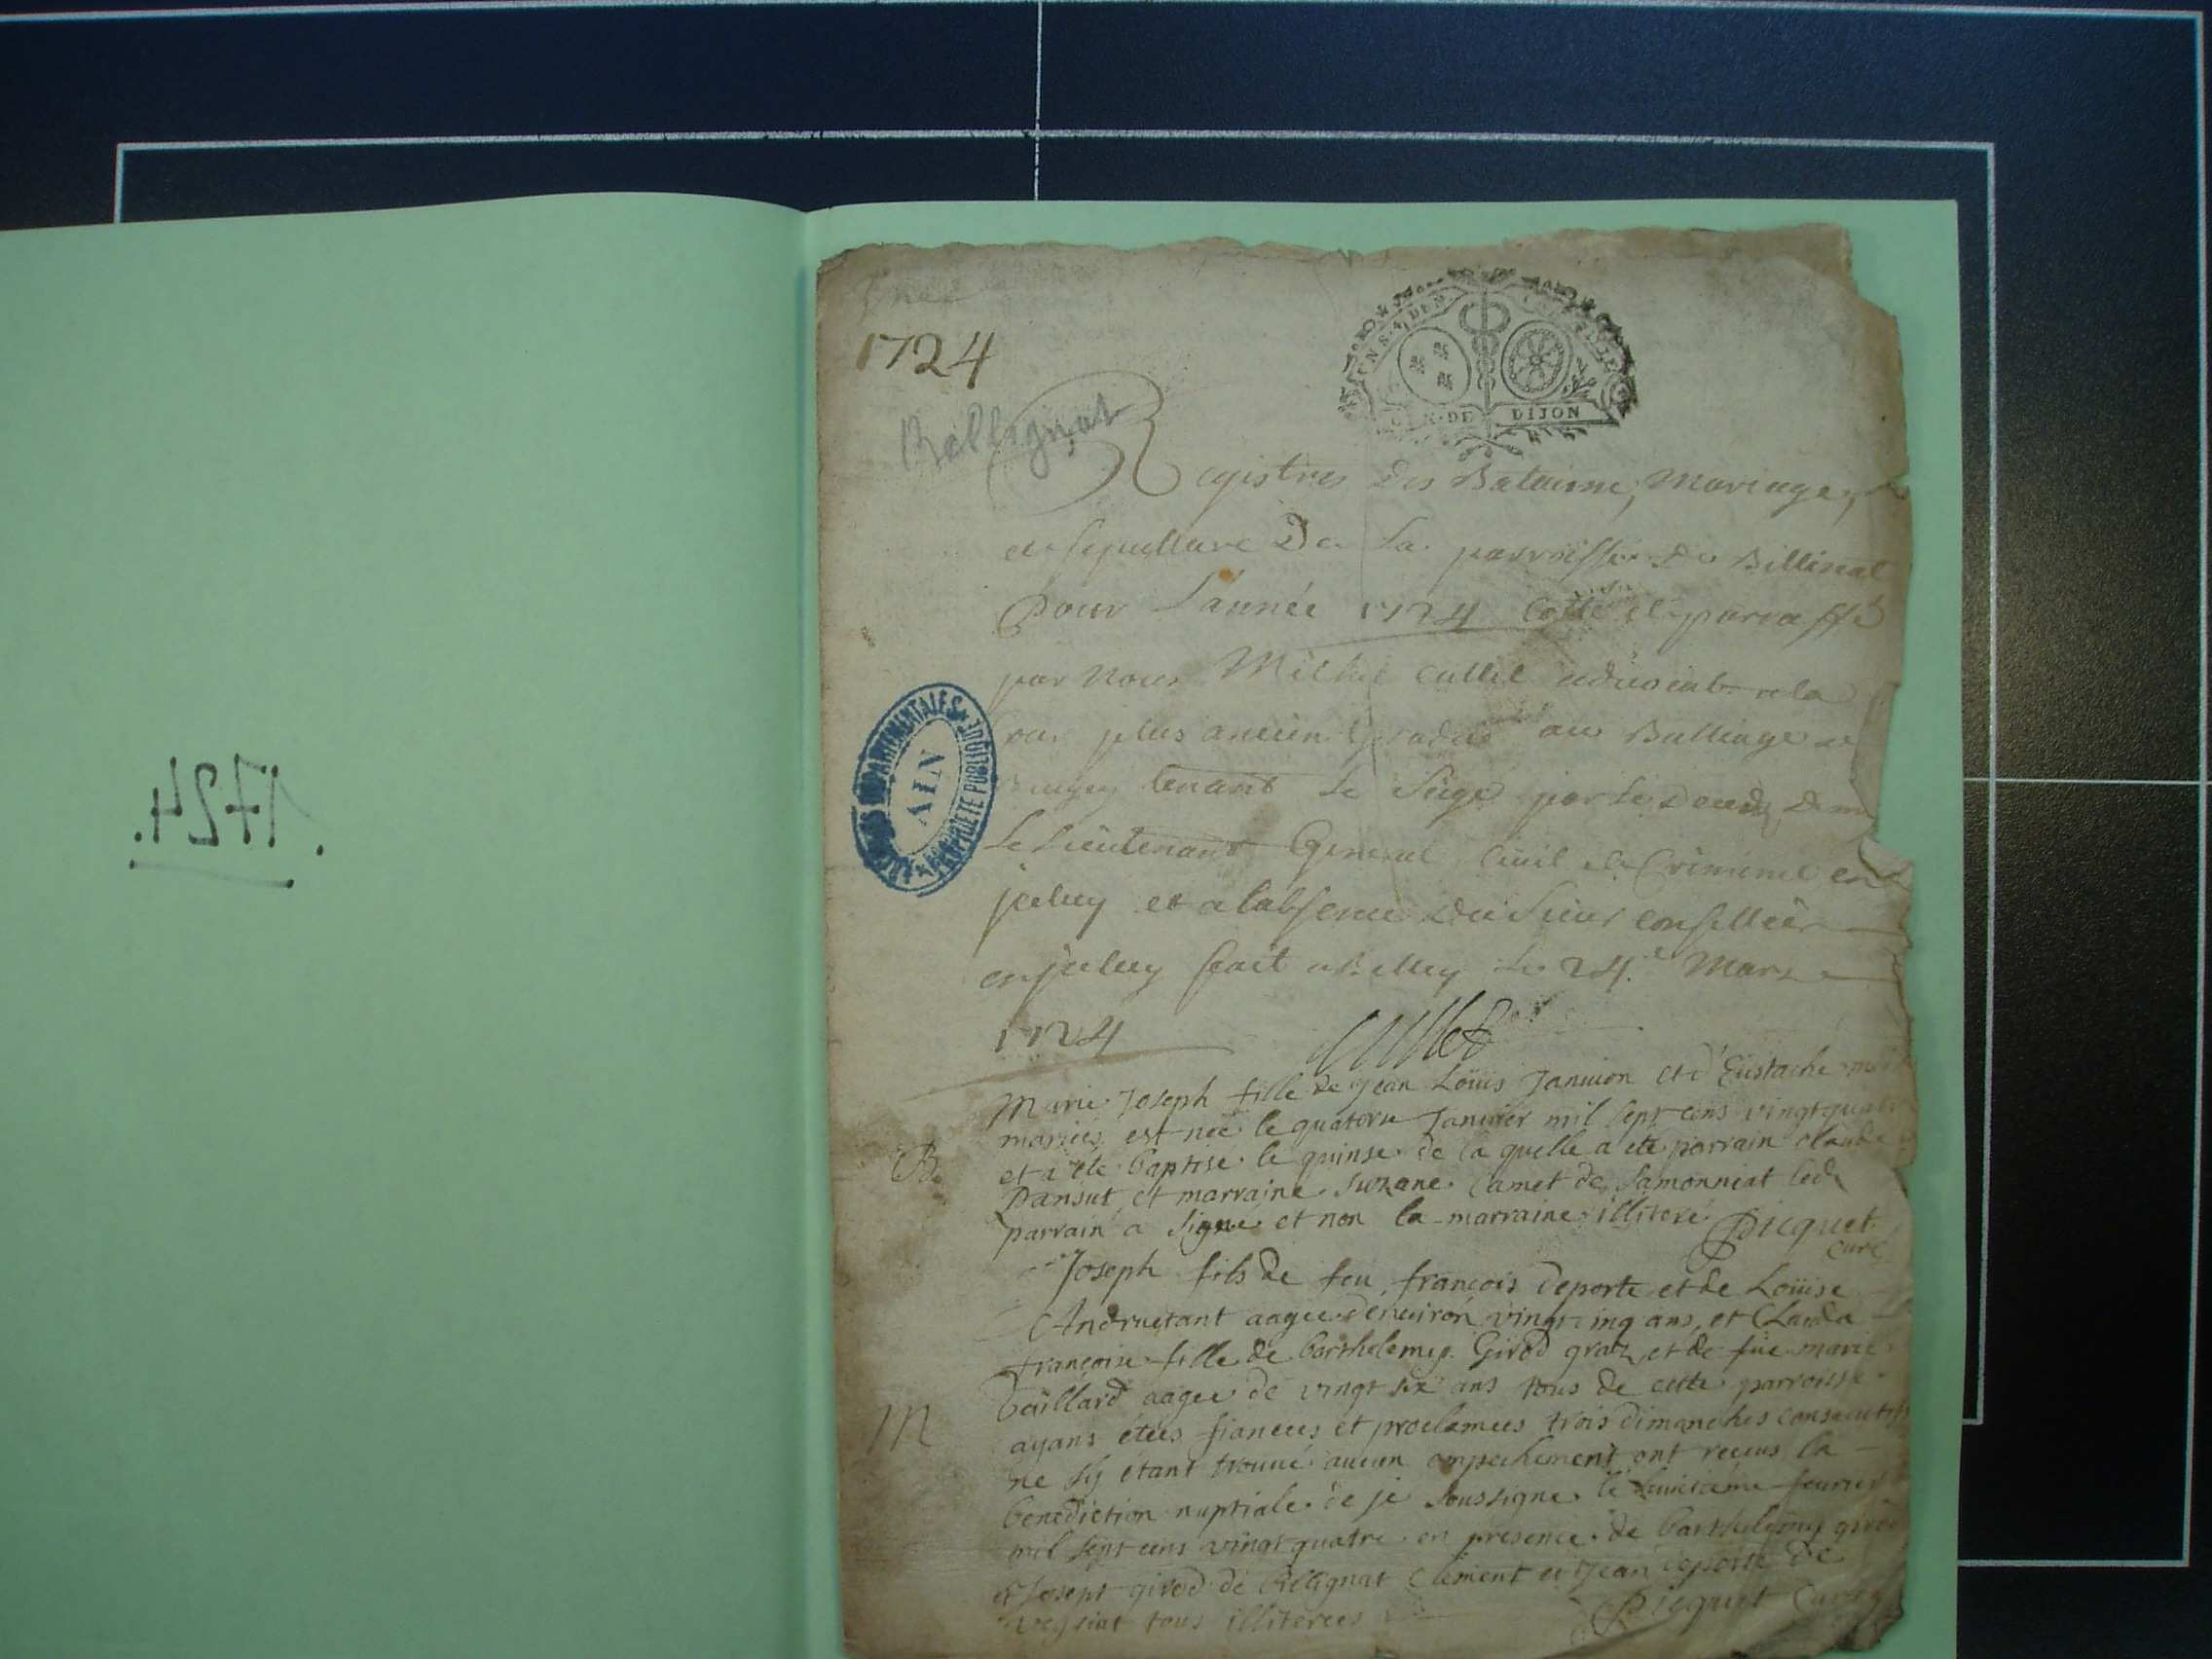 1724.
1724
Bellignat
GEN. DE DIJON
ARCHIVES DEPARTEMENTALES
AIN
PROPRIETE PUBLIQUE
Registres des Bataisme, Mariage,
et sepulture De la parroisse de Billinat
pour L'année 1724 Cotté et paraffé
par Nous Michel Cullet advocat a la
Cour plus ancien gradué au Balliage de
Bugey tenant le siege par le deceds de m
le Lieutenant General Civil et Criminel en
jceluy et a l'absence du sieur conseiller
en jceluy fait a Belley le 24.e Mars
1724
Cullet
B.
Marie Joseph fille de Jean Loüis Janvion et d'Eustache
mariés, est née le quatorze Janvier mil sept cens vingt quatre
et a été baptisé le quinse de la quelle a eté parrain claude
Pansut, et marraine Suzane Camet de Samonniat led.
parrain a signé et non la marraine illiteré. Picquet
curé
M
Joseph fils de feu françois deporte et de Loüise
Andruetant aagee denuiron vingt cinq ans, et Clauda
françoise fille de barthelemy Girod graz, et de fue marie
Vaillard aagee de vingt six ans tous de cette parroisse
ayans étées fiancees et proclamees trois dimanches consecutifs
ne s'y etant trouué aucun ampechement ont receus la
benediction nuptiale de je soussigné le huitieme feurier
mil sept cens vingt quatre en presence de barthelemy girod
et Josept girod de billignat Clement et Jean deporte de
Veysiat tous illiterees Picquet Curé